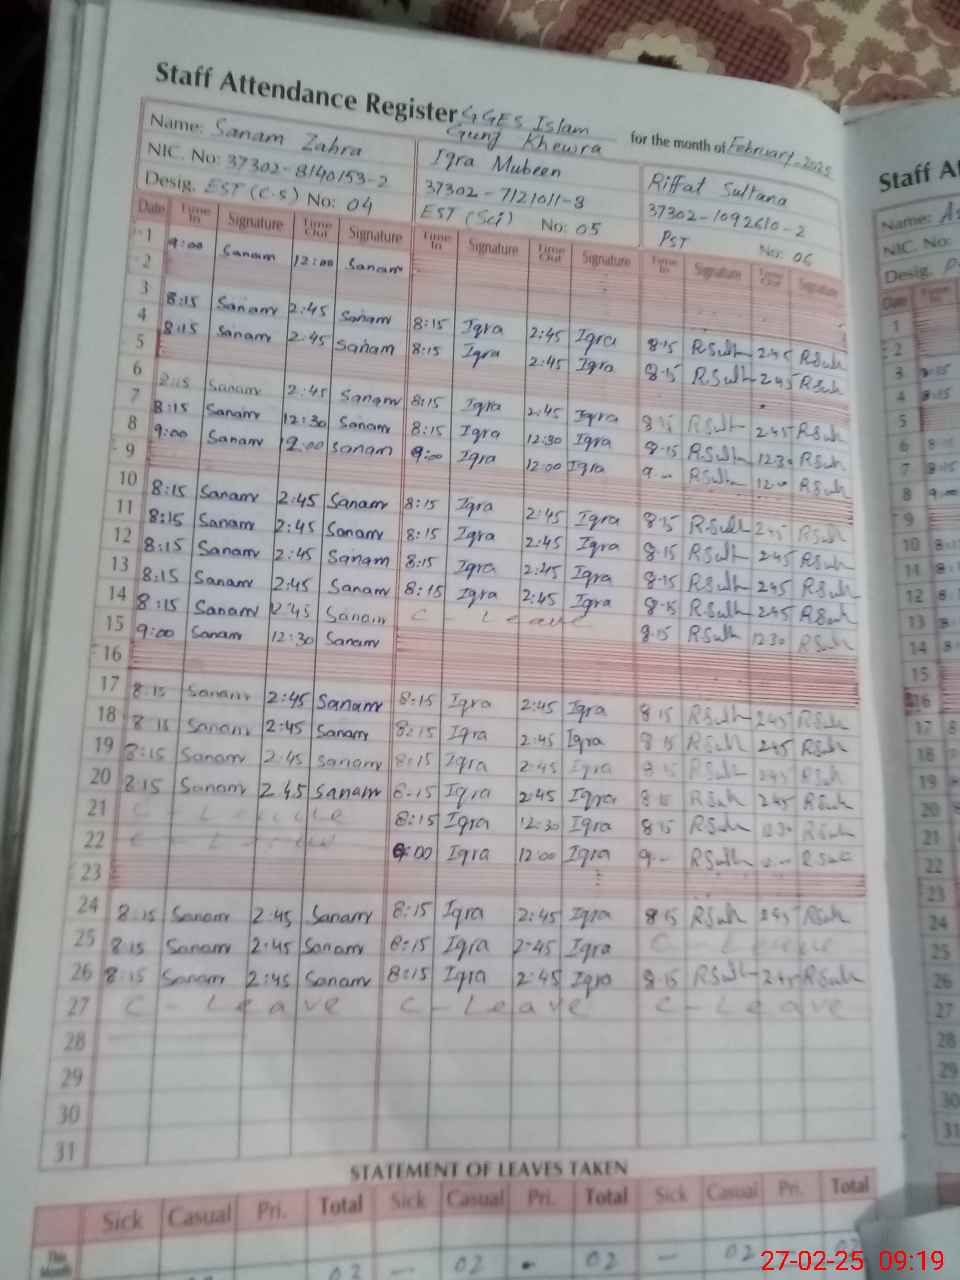 Staff Attendance Register GGES Islam Gunj Khewra for the month of February-2025
Name: Sanam Zahra Iqra Mubeen Riffat Sultana
NIC. No: 37302-8140153-2 37302-7121011-8 37302-1092610-2
Desig. EST (C.S) No: 04 EST (Sci) No: 05 PST No: 06
Date Time In Signature Time Out Signature Time In Signature Time Out Signature Time In Signature Time Out Signature
1 9:00 Sanam 12:00 Sanam
2
3 8:15 Sanam 2:45 Sanam 8:15 Iqra 2:45 Iqra 8:15 RSult 2:45 RSult
4 8:15 Sanam 2:45 Sanam 8:15 Iqra 2:45 Iqra 8:15 RSult 2:45 RSult
5
6 8:15 Sanam 2:45 Sanam 8:15 Iqra 2:45 Iqra 8:15 RSult 2:45 RSult
7 8:15 Sanam 12:30 Sanam 8:15 Iqra 12:30 Iqra 8:15 RSult 12:30 RSult
8 9:00 Sanam 12:00 Sanam 9:00 Iqra 12:00 Iqra 9 - RSult 12:00 RSult
9
10 8:15 Sanam 2:45 Sanam 8:15 Iqra 2:45 Iqra 8:15 RSult 2:45 RSult
11 8:15 Sanam 2:45 Sanam 8:15 Iqra 2:45 Iqra 8:15 RSult 2:45 RSult
12 8:15 Sanam 2:45 Sanam 8:15 Iqra 2:45 Iqra 8:15 RSult 2:45 RSult
13 8:15 Sanam 2:45 Sanam 8:15 Iqra 2:45 Iqra 8:15 RSult 2:45 RSult
14 8:15 Sanam 2:45 Sanam C - Leave 8:15 RSult 12:30 RSult
15 9:00 Sanam 12:30 Sanam
16
17 8:15 Sanam 2:45 Sanam 8:15 Iqra 2:45 Iqra 8:15 RSult 2:45 RSult
18 8:15 Sanam 2:45 Sanam 8:15 Iqra 2:45 Iqra 8:15 RSult 2:45 RSult
19 8:15 Sanam 2:45 Sanam 8:15 Iqra 2:45 Iqra 8:15 RSult 2:45 RSult
20 8:15 Sanam 2:45 Sanam 8:15 Iqra 2:45 Iqra 8:15 RSult 2:45 RSult
21 C - Leave 8:15 Iqra 12:30 Iqra 8:15 RSult 12:30 RSult
22 C - Leave 9:00 Iqra 12:00 Iqra 9 - RSult RSult
23
24 8:15 Sanam 2:45 Sanam 8:15 Iqra 2:45 Iqra 8:15 RSult 2:45 RSult
25 8:15 Sanam 2:45 Sanam 8:15 Iqra 2:45 Iqra C - Leave
26 8:15 Sanam 2:45 Sanam 8:15 Iqra 2:45 Iqra 8:15 RSult 2:45 RSult
27 C - Leave C - Leave C - Leave
28
29
30
31
STATEMENT OF LEAVES TAKEN
Sick Casual Pri. Total Sick Casual Pri. Total Sick Casual Pri. Total
This Month 02 - 02 - 02 - 02 - 02
Staff
Name:
NIC. No:
Desig.
Date
1
2
3 8:15
4 8:15
5
6 8:15
7 8:15
8 9:00
9
10
11
12
13
14
15
16
17
18
19
20
21
22
23
24
25
26
27
28
29
30
31
27-02-25 09:19